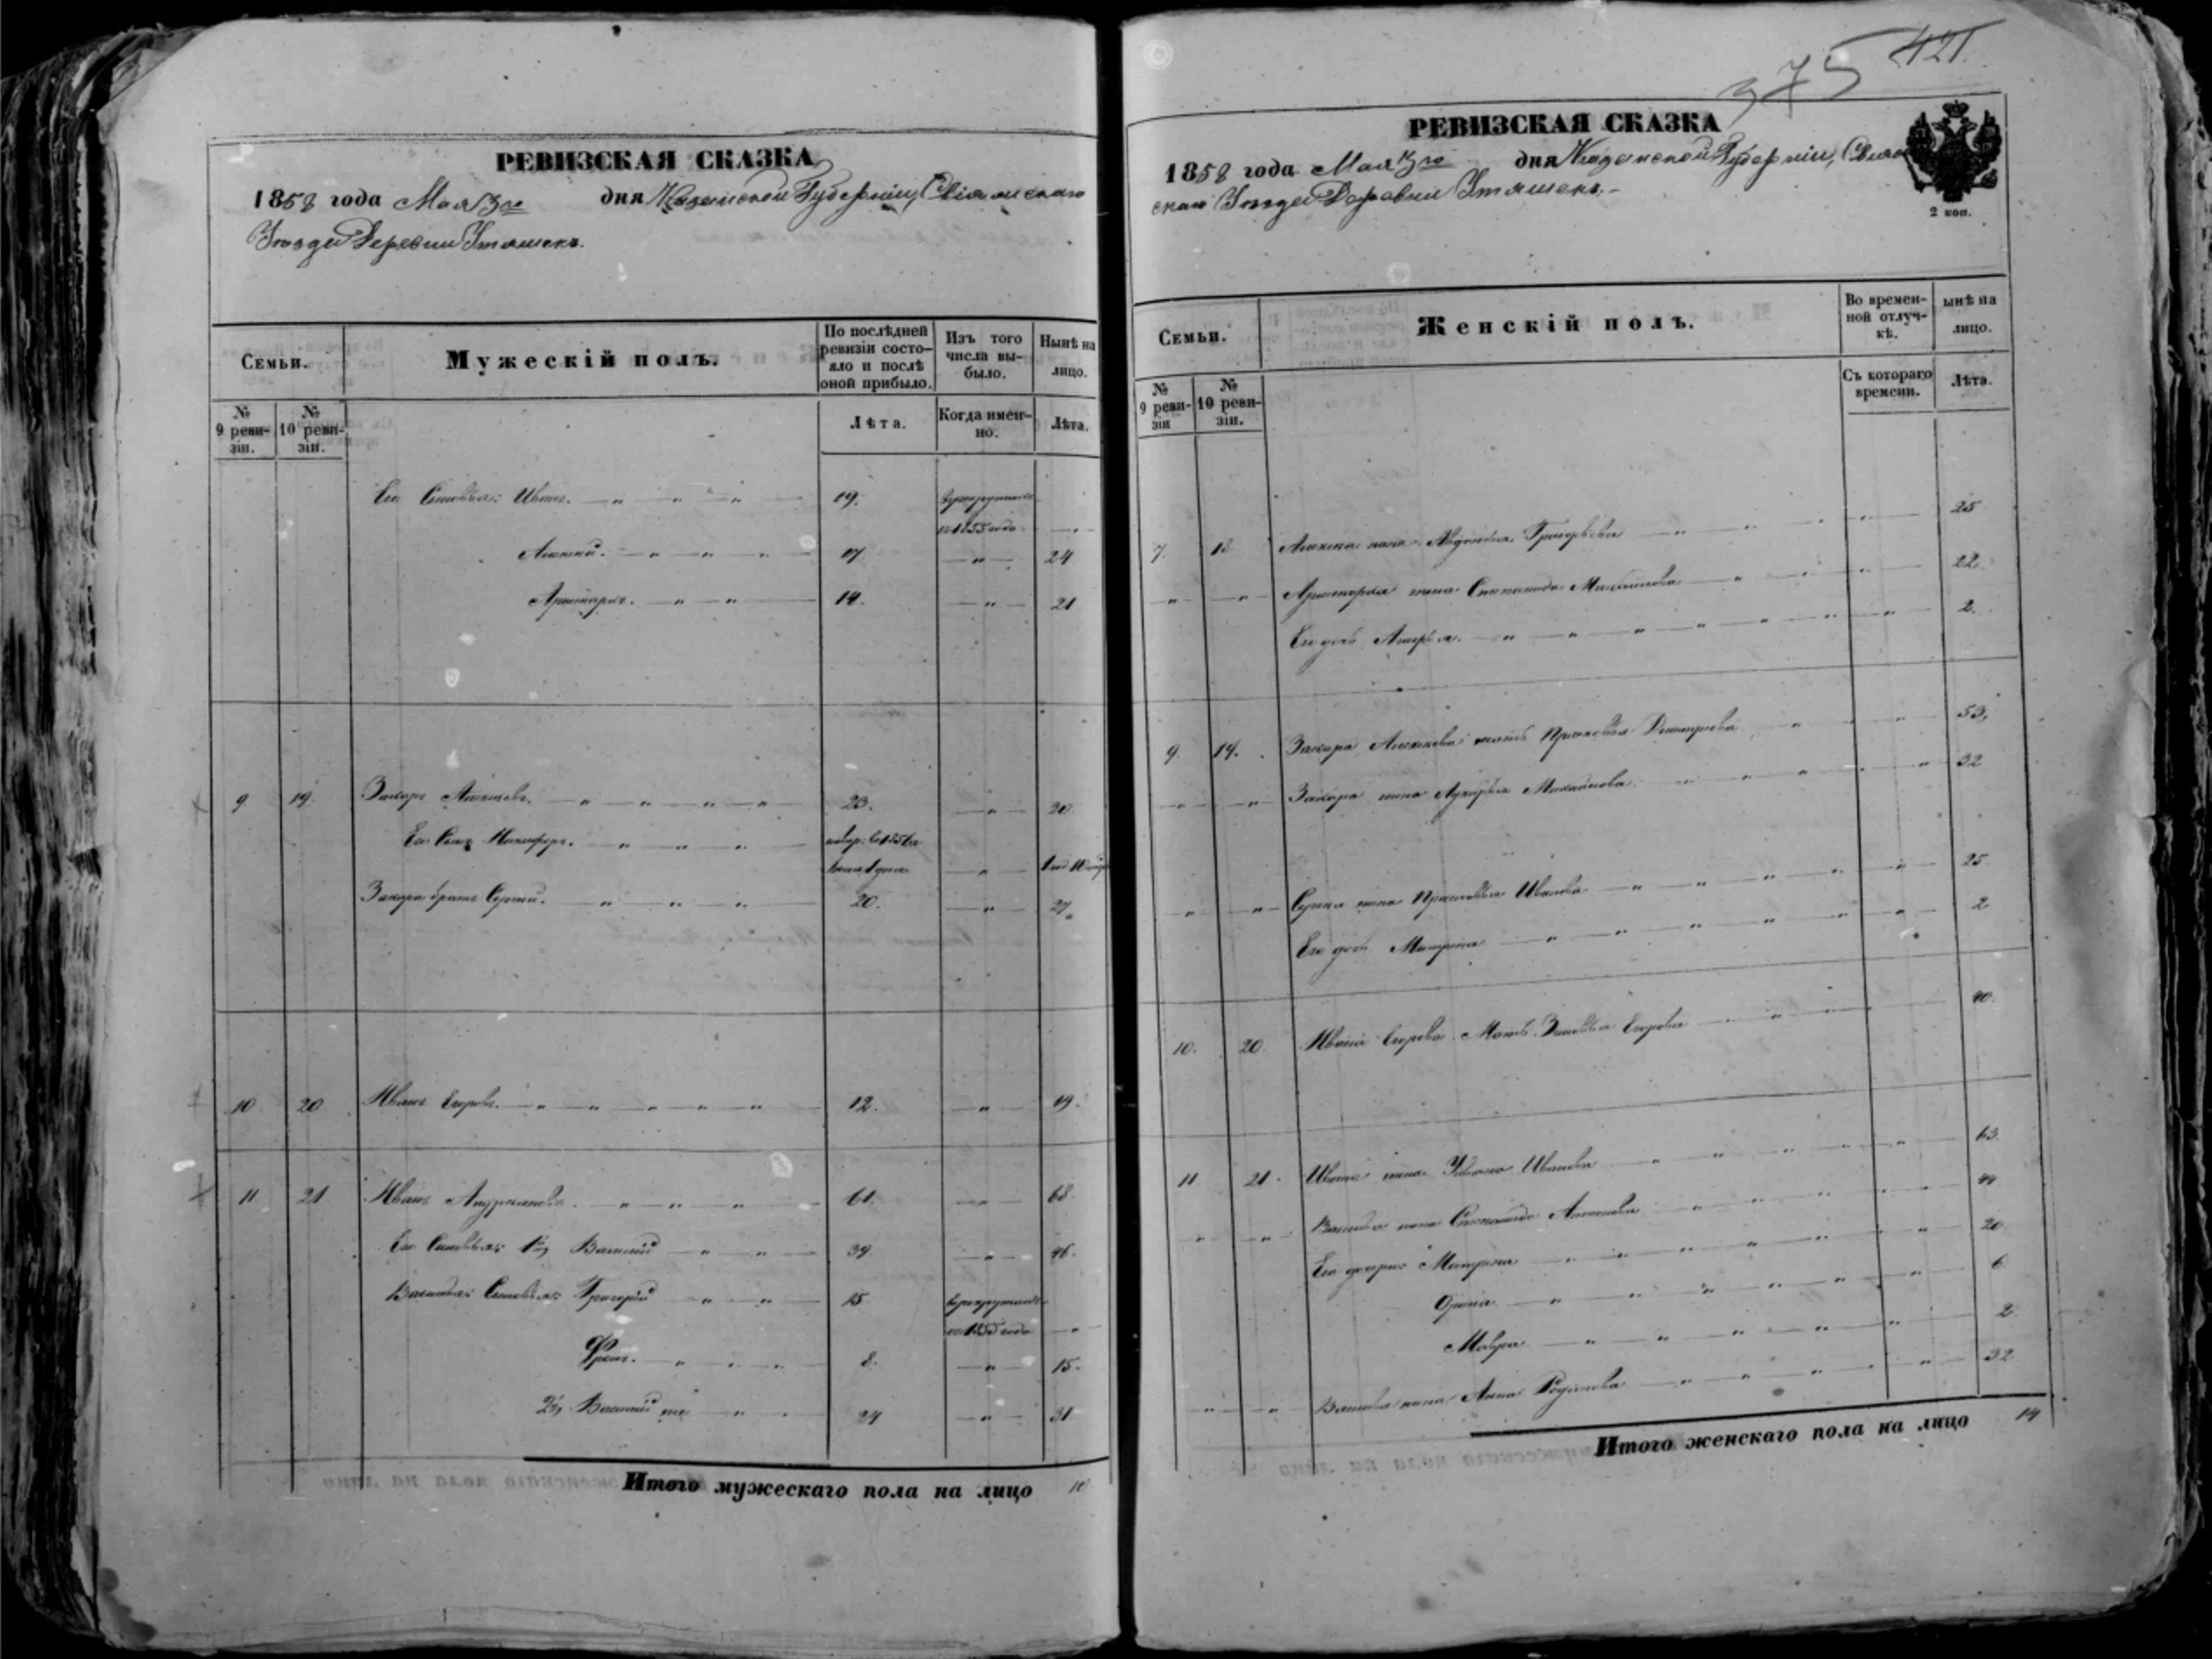 РЕВИЗСКАЯ СКАЗКА
1858 года Мая 3го дня Казанской Губерніи, Свіяжскаго
Уѣзда Деревни Утяшекъ.
Семьи.
Мужескій полъ.
По послѣдней ревизіи состояло и послѣ оной прибыло.
Изъ того числа выбыло.
Нынѣ на лицо.
№ 9 ревизіи.
№ 10 ревизіи.
Лѣта.
Когда именно.
Лѣта.
Его Сыновья: Иванъ. 19.
в 1855 года
Алексѣй. 17 24
14. 21
9 19. Захаръ 23. 30
Его Сынъ Никифоръ.
Захара братъ Сергѣй. 20. 27
10 20 Иванъ Егоровъ. 12. 19.
11 21 Иванъ 61. 68.
Его Сыновья: 1й, Василій 39. 46.
Василья Сыновья: Григорій 15
года
8. 15.
2й, Василій же 24 31
Итого мужескаго пола на лицо 10
375 421.
РЕВИЗСКАЯ СКАЗКА
1858 года Мая 3го дня Казанской Губерніи, Свіяж
скаго Уѣзда Деревни Утяшекъ.
2 коп.
Семьи.
Женскій полъ.
Во временной отлучкѣ.
ынѣ на лицо.
№ 9 ревизіи
№ 10 ревизіи.
Съ котораго времени.
Лѣта.
7. 18 жена Григорьева 25
жена Степанида Михайлова 22.
Его дочь 2.
9. 19. Захара мать Прасковья Дмитріева 53.
Захара жена Михайлова 32
Сергѣя жена Прасковья Иванова 25.
Его дочь Матрена 2
10. 20. Ивана Егорова Мать Зиновья Егорова 40.
11 21. Ивана жена Ульяна Иванова 63.
Василья жена Степанида 44
Его дочери: Матрена 20.
Орина 6.
Мавра 2
Василья жена Анна Родіонова 32
Итого женскаго пола на лицо 14